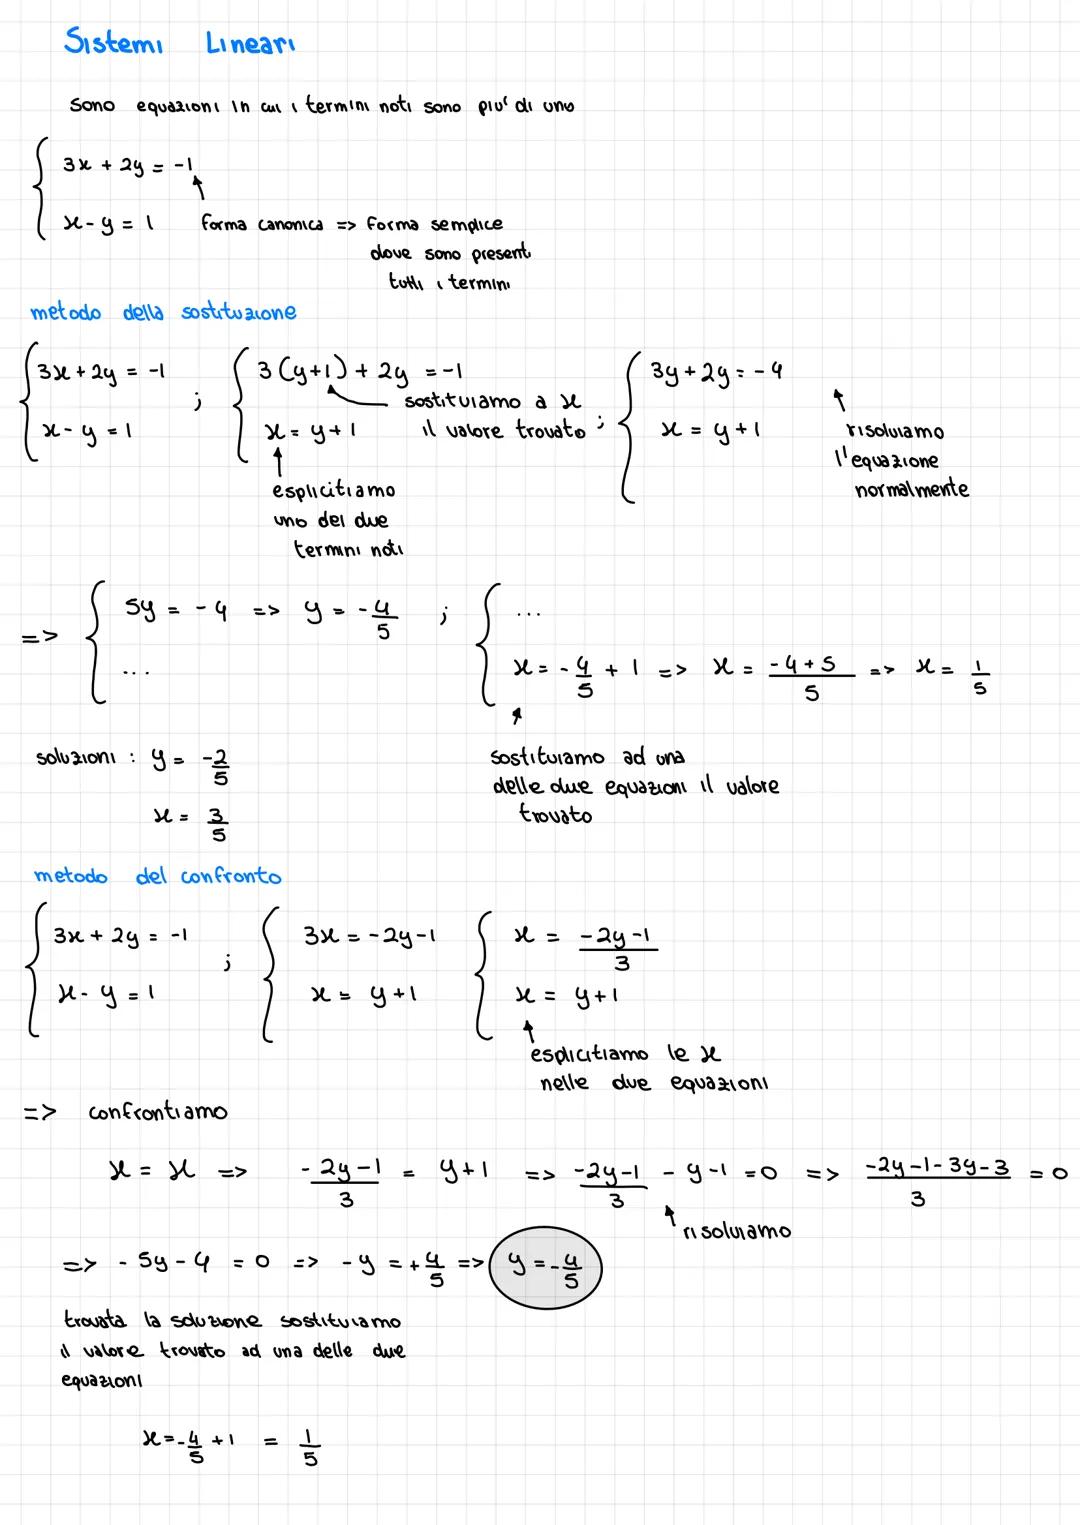 Sistemi Lineari
Sono equazioni in cui i termini noti sono piu' di uno
3x + 2y = -1
x - y = 1
forma canonica => forma semplice
dove sono presenti
tutti i termini
metodo della sostituzione
3x + 2y = -1
x - y = 1
;
3(y+1) + 2y = -1
x = y+1
sostituiamo a x
il valore trovato
;
3y + 2y = -4
x = y+1
risolviamo
l'equazione
normalmente
esplicitiamo
uno dei due
termini noti
=> 5y = -4 => y = -4/5 ;
...
...
x = -4/5 + 1 => x = -4+5/5 => x = 1/5
soluzioni : y = -2/5
x = 3/5
sostituiamo ad una
delle due equazioni il valore
trovato
metodo del confronto
3x + 2y = -1
x - y = 1
;
3x = -2y-1
x = y+1
x = -2y-1/3
x = y+1
esplicitiamo le x
nelle due equazioni
=> confrontiamo
x = x => -2y-1/3 = y+1 => -2y-1/3 - y-1 = 0 => -2y-1-3y-3/3 = 0
risolviamo
=> -5y-4 = 0 => -y = +4/5 => y = -4/5
trovata la soluzione sostituiamo
il valore trovato ad una delle due
equazioni
x = -4/5 + 1 = 1/5